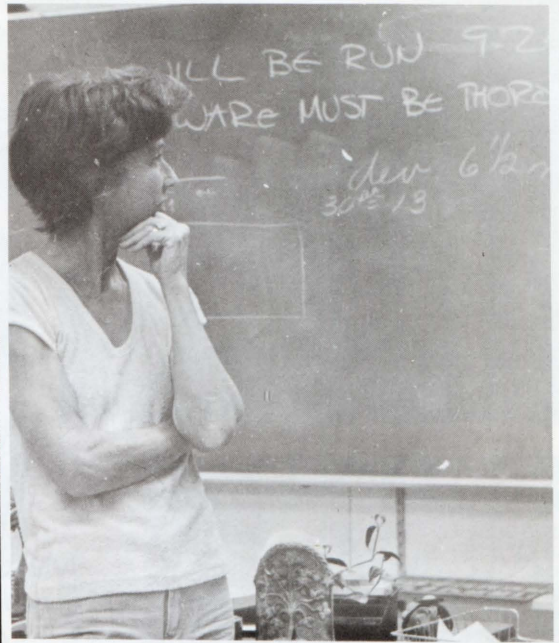 ILL BE RUN 9-2
WARE MUST BE THORO
dev 6 1/2 m